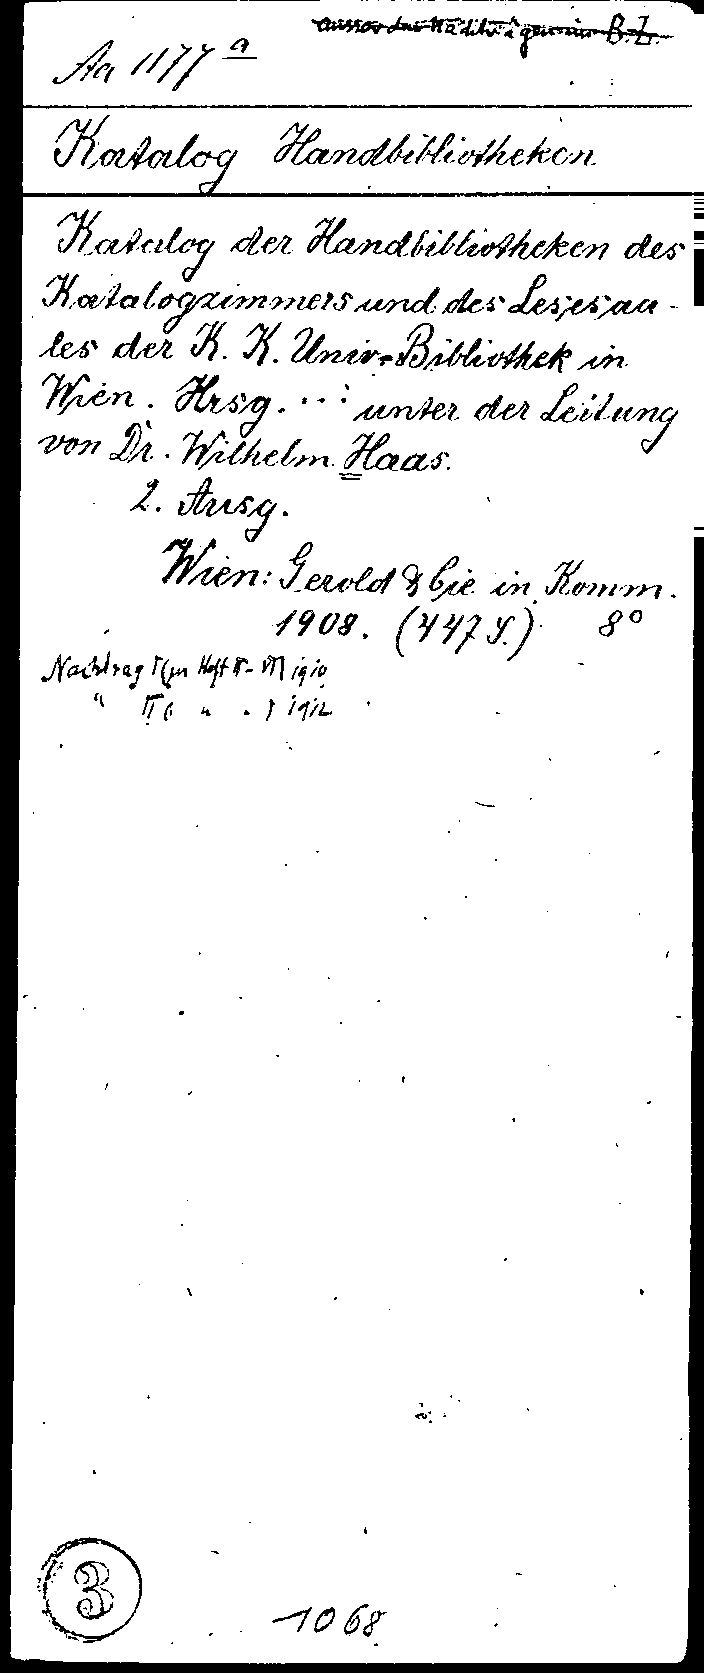 B. Z.
Aa 1177 a
Katalog Handbibliotheken
Katalog der Handbibliotheken des
Katalogzimmers und des Lesesaa-
les der K. K. Univ.-Bibliothek in
Wien. Hrsg. ... unter der Leitung
von Dr. Wilhelm Haas.
2. Ausg.
Wien: Gerold & Cie in Komm.
1908. (447 S.) 8°
Nachtrag I (zu Heft II-VII) 1910
" II ( " . ) 1912
3
1068